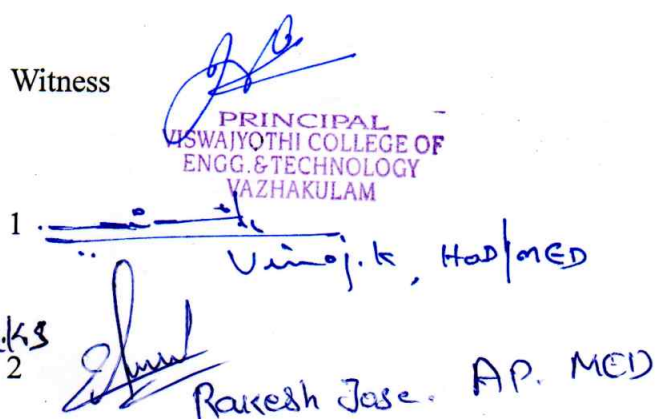 Witness
PRINCIPAL
VISWAJYOTHI COLLEGE OF
ENGG.&TECHNOLOGY
VAZHAKULAM
1
Vinoj.K, HOD/MED
2
Rakesh Jose. AP. MED